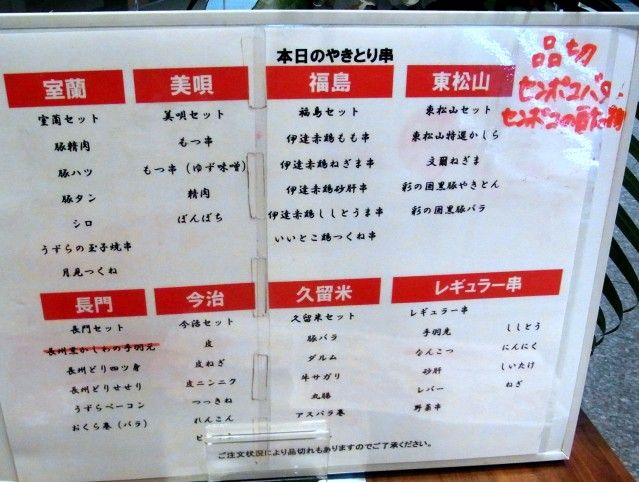 本日のやきとり串
品切
センポコバター
センポコの
室蘭
室蘭セット
豚精肉
豚ハツ
豚タン
シロ
うずらの玉子焼串
月見つくね
美唄
美唄セット
もつ串
もつ串(ゆず味噌)
精肉
ぼんぼち
福島
福島セット
伊達赤鶏もも串
伊達赤鶏ねぎま串
伊達赤鶏砂肝串
伊達赤鶏ししとうま串
いいとこ鶏つくね串
東松山
東松山セット
東松山特選かしら
文爾ねぎま
彩の国黒豚やきとん
彩の国黒豚バラ
長門
長門セット
長州黒かしわの手羽元
長州どり四ツ身
長州どりせせり
うずらベーコン
おくら巻(バラ)
今治
今治セット
皮
皮ねぎ
皮ニンニク
つっきね
れんこん
久留米
久留米セット
豚バラ
ダルム
牛サガリ
丸腸
アスパラ巻
レギュラー串
レギュラー串
手羽先
なんこつ
砂肝
レバー
野菜串
ししとう
にんにく
しいたけ
ねぎ
ご注文状況により品切れもありますのでご了承ください。